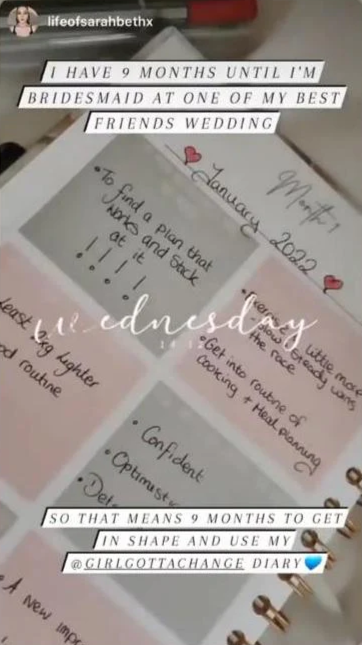 lifeofsarahbethx
I HAVE 9 MONTHS UNTIL I'M
BRIDESMAID AT ONE OF MY BEST
FRIENDS WEDDING
Month 1
January 2022
•To find a plan that
works and stick
at it
!!!!
wednesday
little more
steady wins
the race
•Get into routine of
cooking + Meal planning
least
lighter
routine
•Confident
•Optimist
SO THAT MEANS 9 MONTHS TO GET
IN SHAPE AND USE MY
@GIRLGOTTACHANGE DIARY💙
•A new